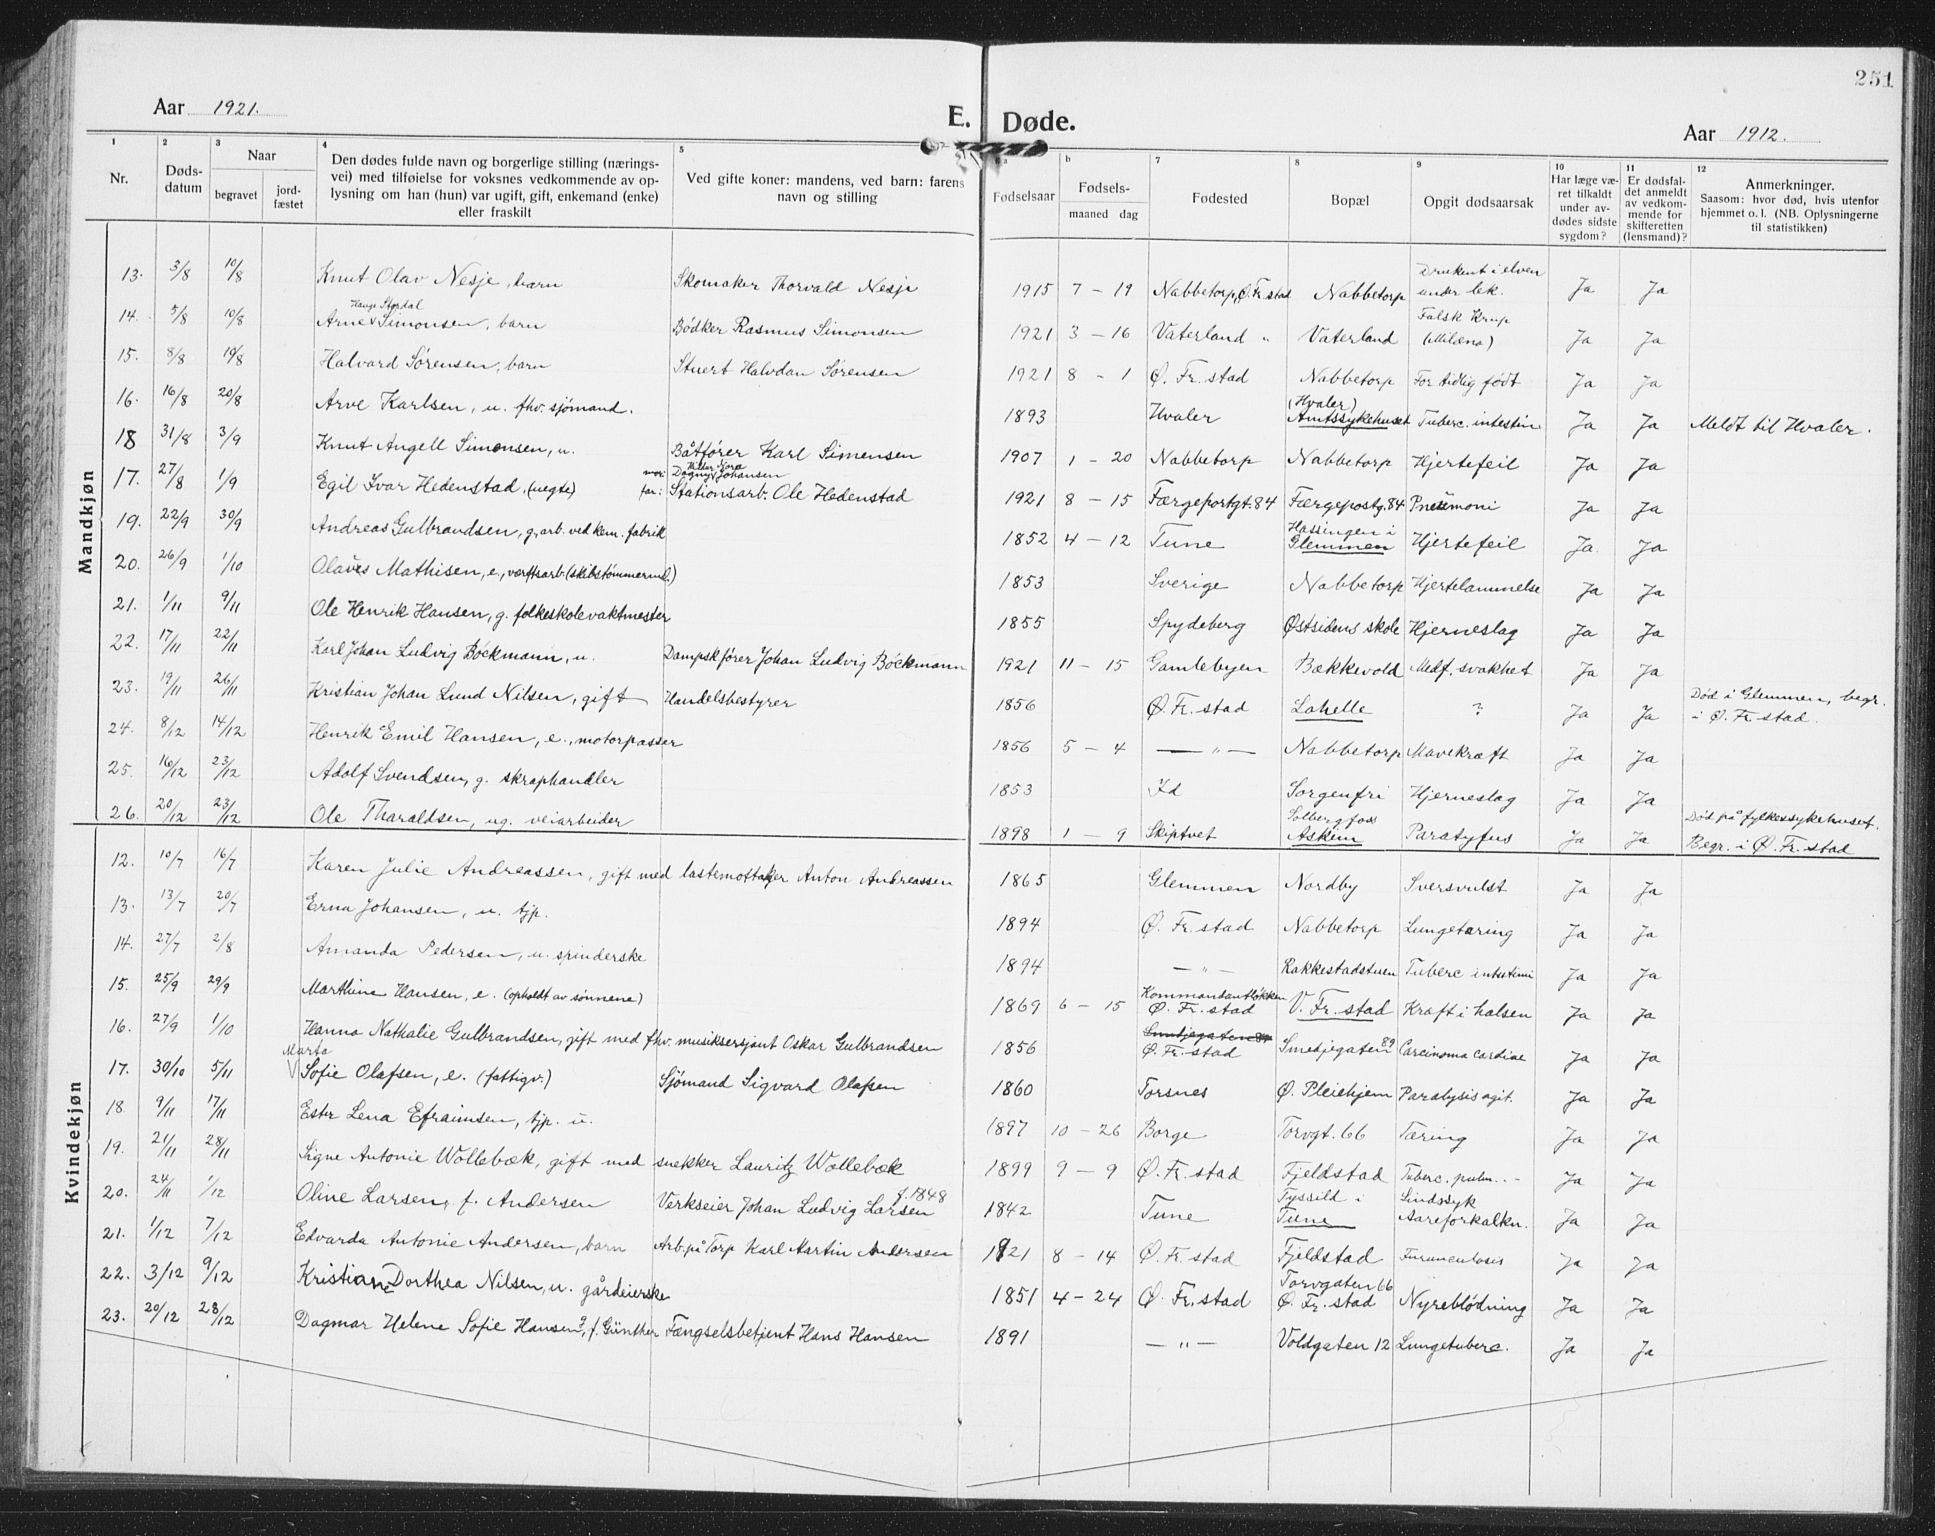 251
Aar 1921.
E. Døde.
Aar 1912.
1 2 3 4 5 6 a b 7 8 9 10 11 12
Nr.
Døds-
datum
Naar
begravet
jord-
fæstet
Den dødes fulde navn og borgerlige stilling (nærings-
vei) med tilføielse for voksnes vedkommende av op-
lysning om han (hun) var ugift, gift, enkemand (enke)
eller fraskilt
Ved gifte koner: mandens, ved barn: farens
navn og stilling
Fødselsaar
Fødsels-
maaned dag
Fødested
Bopæl
Opgit dødsaarsak
Har læge væ-
ret tilkaldt
under av-
dødes sidste
sygdom?
Er dødsfal-
det anmeldt
av vedkom-
mende for
skifteretten
(lensmand)?
Anmerkninger.
Saasom: hvor død, hvis utenfor
hjemmet o. l. (NB. Oplysningerne
til statistikken)
Mandkjøn
13. 3/8 10/8 Knut Olav Nesje, barn Skomaker Thorvald Nesje 1915 7 - 19 Nabbetorp, Ø. Fr.stad Nabbetorp Druknet i elven under lek. Ja Ja
14. 5/8 10/8 Arne Simonsen, barn Bödker Rasmus Simonsen 1921 3 - 16 Vaterland " Vaterland Falsk Krup Ja Ja
15. 8/8 Halvard Sørensen, barn Stuert Halvdan Sørensen 1921 8 - 1 Ø. Fr.stad Nabbetorp For tidlig født Ja Ja
16. 16/8 20/8 Arve Karlsen, u. fhv. sjömand. 1893 Hvaler (Hvaler) Amtssykehuset Tuberc. intestin Ja Ja Meldt til Hvaler.
18 31/8 3/9 Knut Angell Simonsen, u. Båtfører Karl Simensen 1907 1 - 20 Nabbetorp Nabbetorp Hjertefeil Ja Ja
17. 27/8 1/9 Egil Ivar Hedenstad, (uegte) mor: Dagny Nora Johansen far: Stationsarb. Ole Hedenstad 1921 8 - 15 Færgeportgt. 84 Færgepostg. 84 Pneumoni Ja Ja
19. 22/9 30/9 Andreas Gulbrandsen, g. arb. ved kem. fabrik 1852 4 - 12 Tune Hassingen i Glemmen Hjertefeil Ja. Ja
20. 26/9 1/10 Olaves Mathisen, e., værftsarb. (skibstømmerm.) 1853 Sverige Nabbetorp Hjertelammelse Ja Ja
21. 1/11 9/11 Ole Henrik Hansen, g. folkeskolevaktmester 1855 Spydeberg Østsidens skole Hjerneslag Ja Ja
22. 17/11 22/11 Karl Johan Ludvig Böckmann, u. Dampskfører Johan Ludvig Böckmann 1921 11 - 15 Gamlebyen Bækkevold Medf. svakhet Ja Ja
23. 19/11 26/11 Kristian Johan Lund Nilsen, gift Handelsbestyrer 1856 Ø. Fr. stad Lahelle ? Ja Ja Død i Glemmen, begr. i Ø. Fr. stad.
24. 8/12 14/12 Henrik Emil Hansen, e., motorpasser 1856 5 - 4 — " — Nabbetorp Mavekræft Ja Ja
25. 16/12 23/12 Adolf Svendsen, g. skraphandler 1853 Id Sorgenfri Hjerneslag Ja Ja
26. 20/12 23/12 Ole Tharaldsen, ug. veiarbeider 1898 1 - 9 Skiptvet Solbergfoss Askim Paratyfus Ja Ja Død på fylkessykehuset. Begr. i Ø. Fr. stad
Kvindekjøn
12. 10/7 16/7 Karen Julie Andreassen, gift med lastemottager Anton Andreassen 1865 Glemmen Nordby Sversvulst Ja Ja
13. 13/7 20/7 Erna Johansen, u. tjp. 1894 Ø. Fr. stad Nabbetorp Lungetæring Ja Ja
14. 27/7 2/8 Amanda Pedersen, u. spinderske 1894 — " — Rakkestadstuen Tuberc intestini Ja Ja
15. 25/9 29/9 Marthine Hansen, e. (opholdt av sönnene) 1869 6 - 15 Kommandantløkken Ø. Fr. stad V. Fr. stad Kræft i halsen Ja Ja
16. 27/9 1/10 Hanna Nathalie Gulbrandsen, gift med fhv. musiksersjant Oskar Gulbrandsen 1856 Smedjegaten 89 Ø. Fr. stad Smedjegaten 89 Carcinoma cardiae Ja Ja
17. 30/10 5/11 Marta Sofie Olafsen, e. (fattigv.) Sjömand Sigvard Olafsen 1860 Torsnes Ø. Pleiehjem Paralysis agit. Ja Ja
18. 9/11 17/11 Ester Lena Efraimsen, tjp. u. 1897 10 - 26 Borge Torvgt. 66 Tæring Ja Ja
19. 21/11 28/11 Signe Antonie Wollebæk, gift med snekker Lauritz Wollebæk 1899 9 - 9 Ø. Fr. stad Fjeldstad Tuberc. pulm. Ja Ja
20. 24/11 1/12 Oline Larsen, f. Andersen Verkseier Johan Ludvig Larsen f. 1848 1842 Tune i Tune Sindssyk Aareforkalkn. Ja Ja
21. 1/12 7/12 Edvarda Antonie Andersen, barn Arb. på Torp Karl Martin Andersen 1921 8 - 14 Ø. Fr. stad Fjeldstad Furunculosis Ja Ja
22. 3/12 9/12 Kristiane Dorthea Nilsen, u. gårdeierske 1851 4 - 24 Ø. Fr. stad Torvgaten 66 Ø. Fr. stad Nyreblödning Ja Ja
23. 20/12 28/12 Dagmar Helene Sofie Hansen, f. Günther Fængselsbetjent Hans Hansen 1891 — " — Voldgaten 12 Lungetuberc. Ja Ja